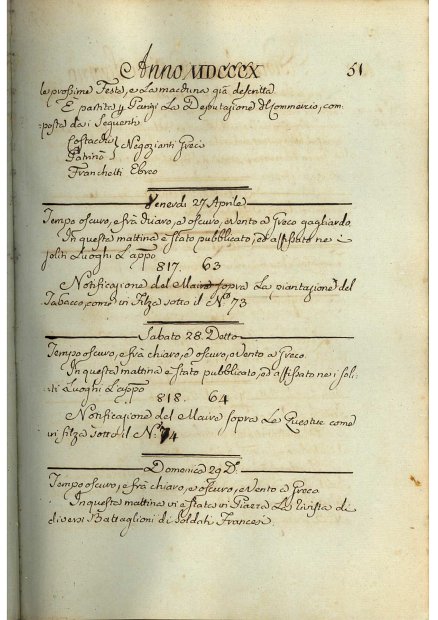 Anno MDCCCX 51
le prossime Feste, e La macchina già descritta
È partita p Parigi La Deputazione di Commercio, com
posta da i Seguenti
Costachi
Patrinò } Negozianti Greci
Franchetti Ebreo
Venerdi 27 Aprile
Tempo oscuro, e frà chiaro, e oscuro, e Vento a Greco gagliardo
In questa mattina è stato pubblicato, ed affissato ne i
soliti Luoghi L'appo
817. 63
Notificazione del Maire sopra La piantazione del
Tabacco, come in Filza sotto il N.º 73
Sabato 28. Detto
Tempo oscuro, e frà chiaro, e oscuro, e Vento a Greco.
In questa mattina è stato pubblicato, ed affissato ne i soli
ti Luoghi L'appo
818. 64
Notificazione del Maire sopra Le Questue come
in filza sotto il N.º 74
Domenica 29 D.º
Tempo oscuro, e frà chiaro, e oscuro, e Vento a Greco
In questa mattina vi è stata in Piazza La Rivista di
diversi Battaglioni di Soldati Francesi.